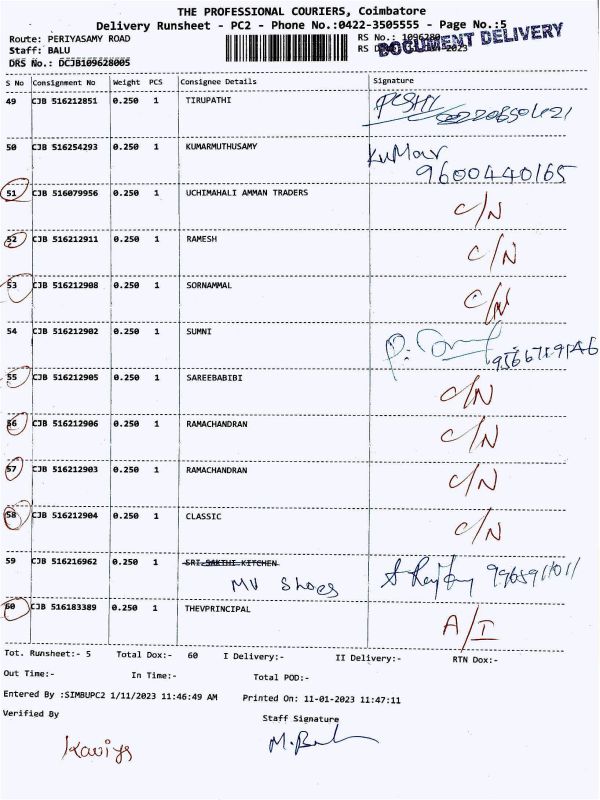 THE PROFESSIONAL COURIERS, Coimbatore
Delivery Runsheet - PC2 - Phone No.:0422-3505555 - Page No.:5
Route: PERIYASAMY ROAD
RS No.: 1096280
Staff: BALU
DOCUMENT DELIVERY
DRS No.: DCJB109628005
S No Consignment No Weight PCS Consignee Details Signature
49 CJB 516212851 0.250 1 TIRUPATHI
50 CJB 516254293 0.250 1 KUMARMUTHUSAMY KuMar
9600440165
51 CJB 516079956 0.250 1 UCHIMAHALI AMMAN TRADERS C/N
52 CJB 516212911 0.250 1 RAMESH C/N
53 CJB 516212908 0.250 1 SORNAMMAL C/N
54 CJB 516212902 0.250 1 SUMNI
55 CJB 516212905 0.250 1 SAREEBABIBI C/N
56 CJB 516212906 0.250 1 RAMACHANDRAN C/N
57 CJB 516212903 0.250 1 RAMACHANDRAN C/N
58 CJB 516212904 0.250 1 CLASSIC C/N
59 CJB 516216962 0.250 1 SRI SAKTHI KITCHEN
MV Shoes
60 CJB 516183389 0.250 1 THEVPRINCIPAL A/I
Tot. Runsheet:- 5 Total Dox:- 60 I Delivery:- II Delivery:- RTN Dox:-
Out Time:- In Time:- Total POD:-
Entered By :SIMBUPC2 1/11/2023 11:46:49 AM Printed On: 11-01-2023 11:47:11
Verified By Staff Signature